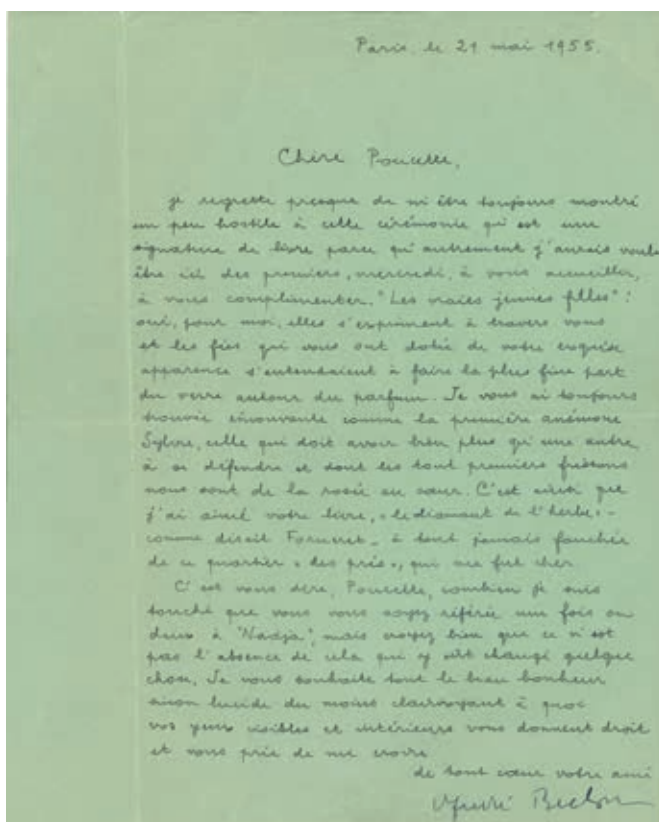 Paris, le 21 mai 1955.
Chère Poucette,
je regrette presque de m'être toujours montré
un peu hostile à cette cérémonie qui est une
signature de livre parce qu'autrement j'aurais voulu
être ici des premiers, mercredi, à vous accueillir,
à vous complimenter. "Les vraies jeunes filles" :
oui, pour moi, elles s'expriment à travers vous
et les fées qui vous ont dotée de votre exquise
apparence s'entendaient à faire la plus fine part
du verre autour du parfum. Je vous ai toujours
trouvée émouvante comme la première anémone
Sylvie, celle qui doit avoir bien plus qu'une autre
à se défendre et dont les tout premiers frissons
nous sont de la rosée au cœur. C'est ainsi que
j'ai aimé votre livre, « le diamant de l'herbe » -
comme disait Forneret - à tout jamais fauchée
de ce quartier « des prés », qui me fut cher.
C'est vous dire, Poucette, combien je suis
touché que vous vous soyez référée une fois ou
deux à "Nadja", mais croyez bien que ce n'est
pas l'absence de cela qui y eût changé quelque
chose. Je vous souhaite tout le beau bonheur
sinon lucide du moins clairvoyant à quoi
vos yeux visibles et intérieurs vous donnent droit
et vous prie de me croire
de tout cœur votre ami
André Breton